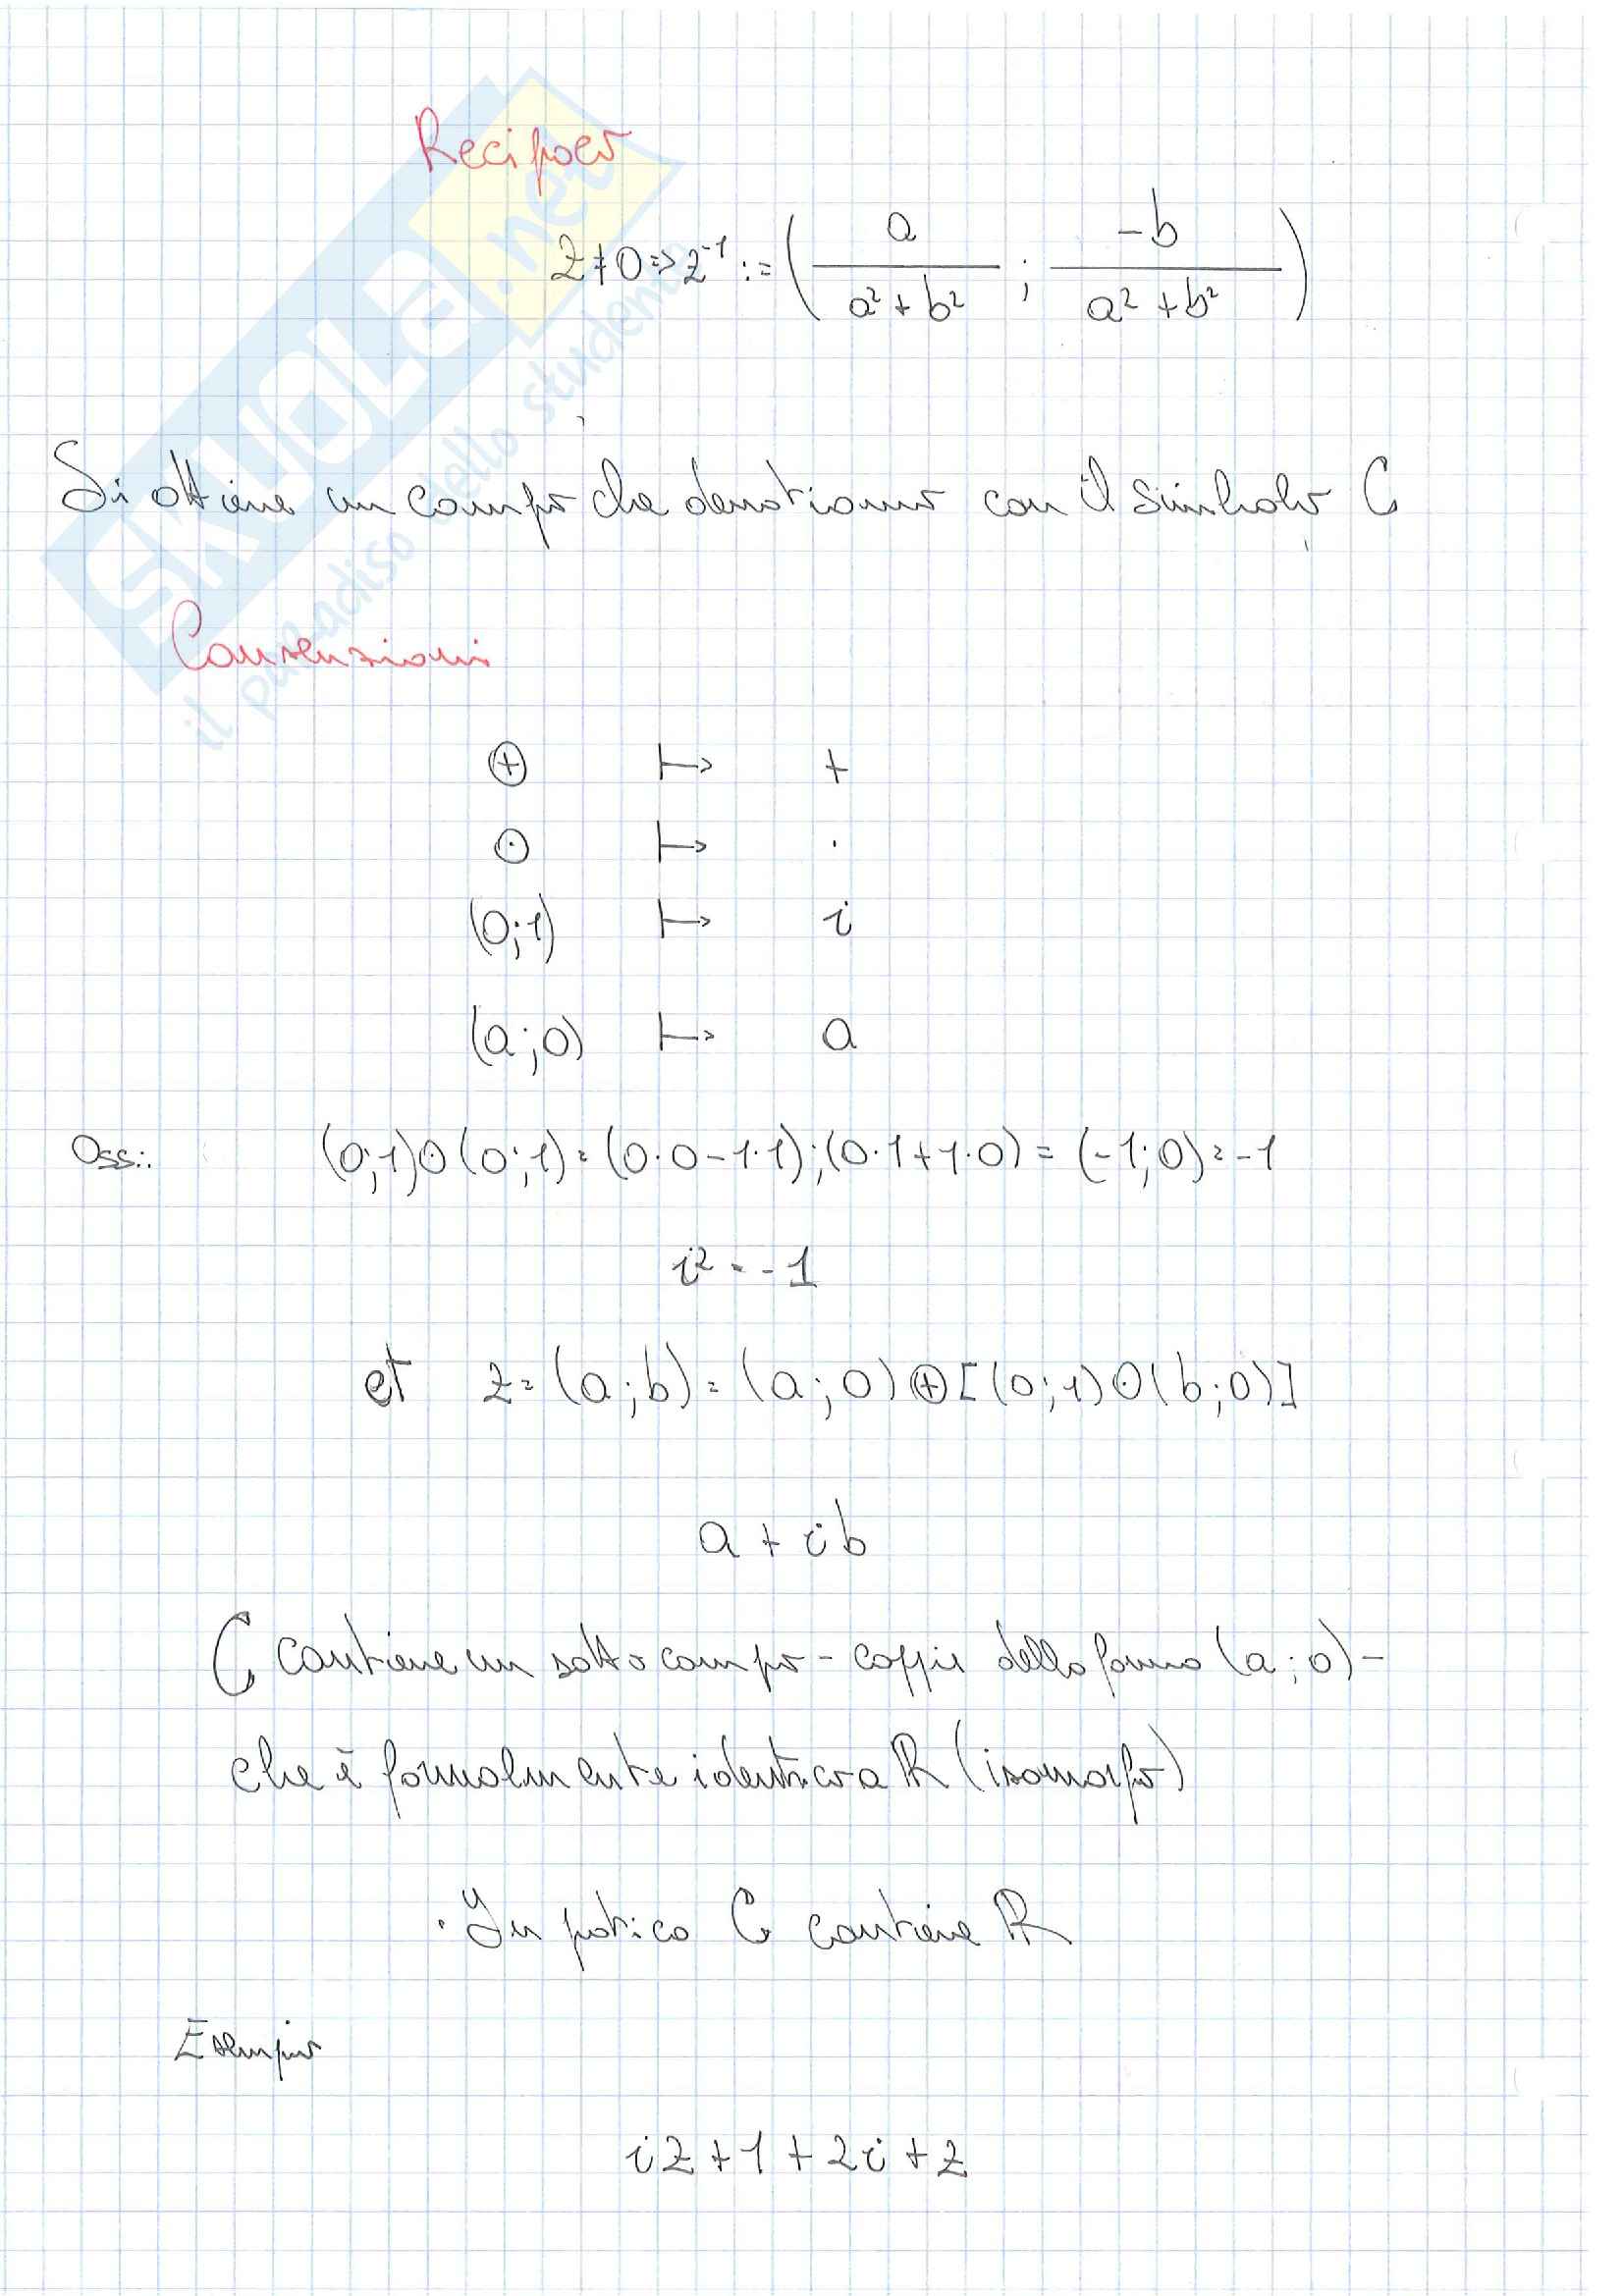 Reciproco
z ≠ 0 => z⁻¹ := ( a / (a² + b²) ; -b / (a² + b²) )
Si ottiene un campo che denotiamo con il simbolo ℂ
Convenzioni
⊕ ↦ +
⊙ ↦ ·
(0;1) ↦ i
(a;0) ↦ a
Oss.: (0;1)⊙(0;1) = (0·0-1·1);(0·1+1·0) = (-1;0) = -1
i² = -1
et z = (a;b) = (a;0)⊕[(0;1)⊙(b;0)]
a + ib
ℂ contiene un sottocampo - coppie della forma (a;0) -
che è formalmente identico a ℝ (isomorfo)
· In pratica ℂ contiene ℝ
Esempio
iz + 1 + 2i + z
SKUOLA.net
il paradiso dello studente